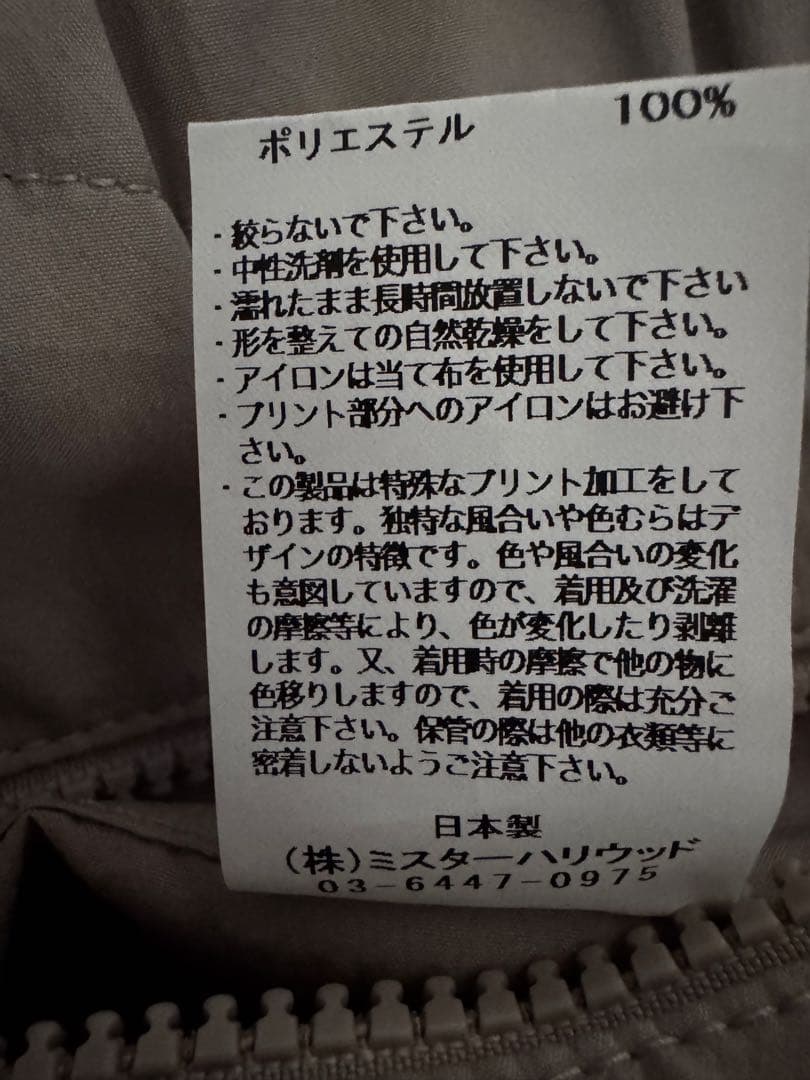 ポリエステル 100%
・絞らないで下さい。
・中性洗剤を使用して下さい。
・濡れたまま長時間放置しないで下さい
・形を整えての自然乾燥をして下さい。
・アイロンは当て布を使用して下さい。
・プリント部分へのアイロンはお避け下
さい。
・この製品は特殊なプリント加工をして
おります。独特な風合いや色むらはデ
ザインの特徴です。色や風合いの変化
も意図していますので、着用及び洗濯
の摩擦等により、色が変化したり剥離
します。又、着用時の摩擦で他の物に
色移りしますので、着用の際は充分ご
注意下さい。保管の際は他の衣類等に
密着しないようご注意下さい。
日本製
(株)ミスターハリウッド
03-6447-0975